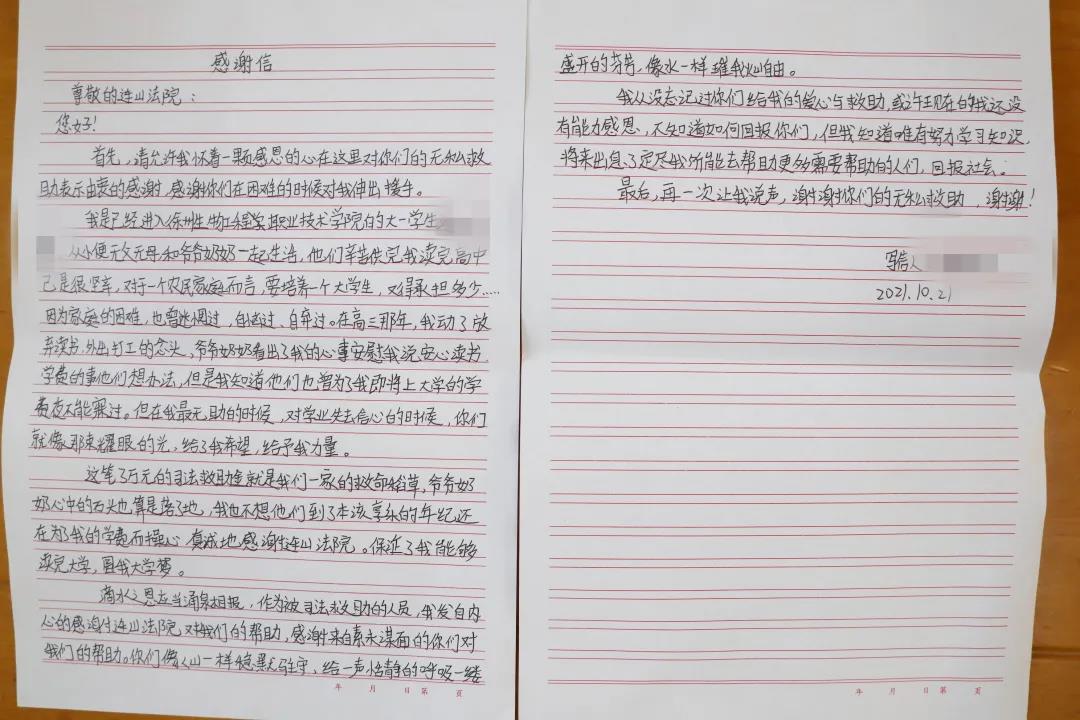 感谢信
尊敬的连山法院：
您好！
首先，请允许我怀着一颗感恩的心在这里对你们的无私救
助表示由衷的感谢，感谢你们在困难的时候对我伸出援手。
我是已经进入徐州生物工程职业技术学院的大一学生
从小便无父无母和爷爷奶奶一起生活，他们辛苦供完我读完高中
已是很坚辛，对于一个农民家庭而言，要培养一个大学生，又得承担多少……
因为家庭的困难，也曾迷惘过，自卑过、自弃过。在高三那年，我动了放
弃读书，外出打工的念头，爷爷奶奶看出了我的心事安慰我说安心读书，
学费的事他们想办法，但是我知道他们也曾为了我即将上大学的学
费夜不能寐过。但在我最无助的时候，对学业失去信心的时候，你们
就像那束耀眼的光，给了我希望，给予我力量。
这笔3万元的司法救助金就是我们一家的救命稻草，爷爷奶
奶心中的石头也算是落了地，我也不想他们到了本该享乐的年纪还
在为了我的学费而操心，真诚地感谢连山法院。保证了我能够
读完大学，圆我大学梦。
滴水之恩应当涌泉相报，作为被司法救助的人员，我发自内
心的感谢连山法院对我们的帮助，感谢来自素未谋面的你们对
我们的帮助。你们像山一样稳默驻守，给一声恬静的呼吸一缕
盛开的芬芳，像水一样 我灿自由。
我从没忘记过你们给我的爱心与救助，或许现在的我还没
有能力感恩，不知道如何回报你们，但我知道唯有努力学习知识，
将来出息了定尽我所能去帮助更多需要帮助的人们，回报社会。
最后，再一次让我说声，谢谢你们的无私救助，谢谢！
写信人
2021.10.21
年 月 日 第 页
年 月 日 第 页